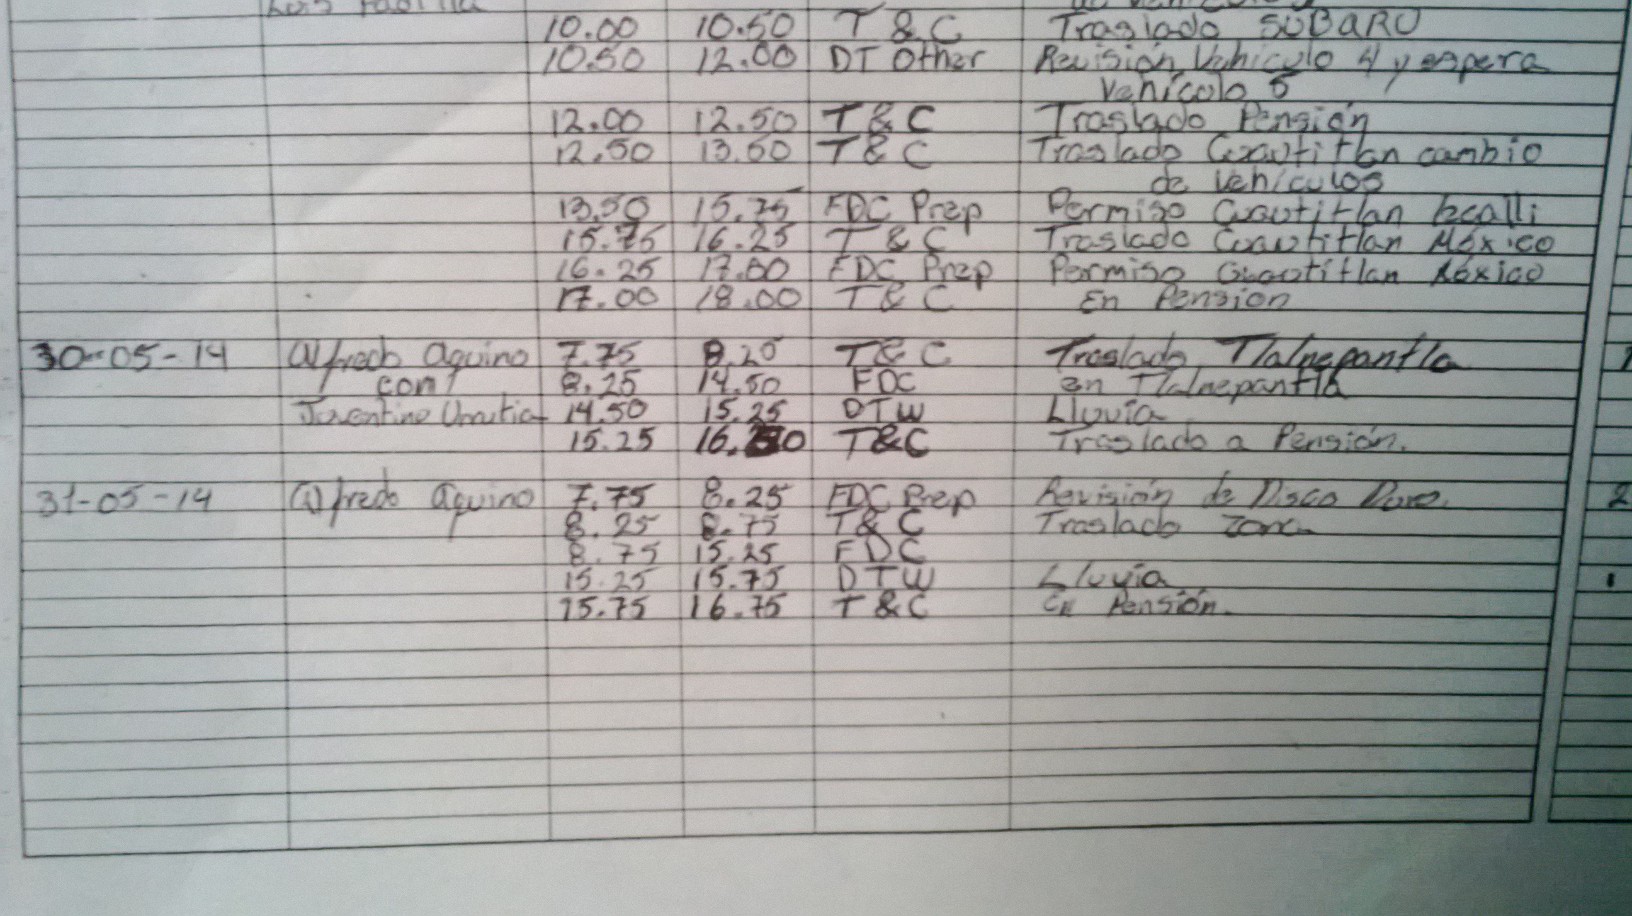 Luis Padilla
10.00 10.50 T & C Traslado SUBARU
10.50 12.00 DT Other Revisión Vehículo 4 y espera
Vehículo 5
12.00 12.50 T & C Traslado Pensión
12.50 13.50 T & C Traslado Cuautitlan cambio
de vehículos
13.50 15.75 FDC Prep Permiso Cuautitlan Izcalli
15.75 16.25 T & C Traslado Cuautitlan México
16.25 17.00 FDC Prep Permiso Cuautitlan México
17.00 18.00 T & C En Pension
30-05-14 Alfredo Aquino 7.75 8.25 T & C Traslado Tlalnepantla
con 8.25 14.50 FDC en Tlalnepantla
14.50 15.25 DTW Lluvia
15.25 T&C Traslado a Pensión.
31-05-14 Alfredo Aquino 7.75 8.25 FDC Prep Revisión de Disco Duro.
8.25 8.75 T & C Traslado Zona
8.75 15.25 FDC
15.25 15.75 DTW Lluvia
15.75 16.75 T & C En Pensión.